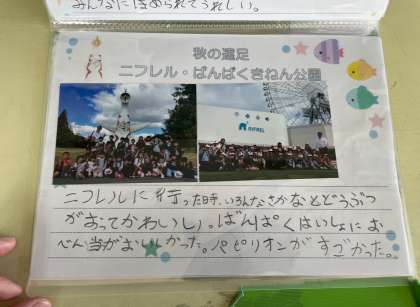 みんなにほめられてうれしい。
秋の遠足
ニフレル・ばんぱくきねん公園
NIFREL
ニフレルに行った時、いろんなさかなとどうぶつ
がおってかわいい。ばんぱくはいしょにお
べん当がおいしかった。パピリオンがすごかった。